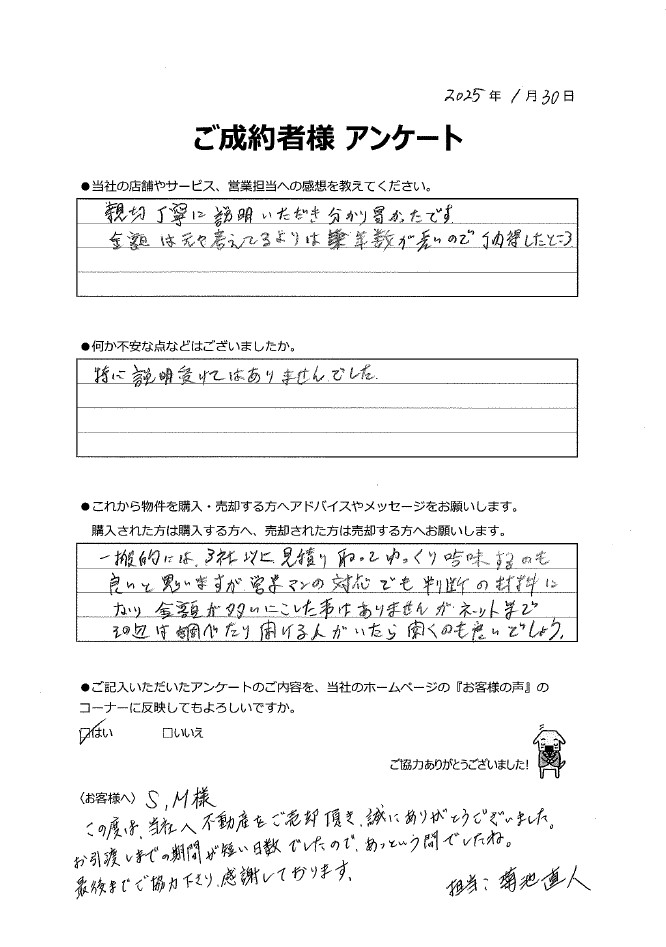 2025年 1月30日
ご成約者様 アンケート
●当社の店舗やサービス、営業担当への感想を教えてください。
親切丁寧に説明いただき分かり易かったです
金額は元々考えてるよりは年数が長いので納得したところ
●何か不安な点などはございましたか。
特に説明受けてはありませんでした.
●これから物件を購入・売却する方へアドバイスやメッセージをお願いします。
購入された方は購入する方へ、売却された方は売却する方へお願いします。
一般的には、3社以上見積り取ってゆっくり吟味するのも
良いと思いますが営業マンの対応でも判断の材料に
なり 金額が多いにこした事はありませんがネット等で
は調べたり聞ける人がいたら聞くのも良いでしょう.
●ご記入いただいたアンケートのご内容を、当社のホームページの『お客様の声』の
コーナーに反映してもよろしいですか。
☑はい □いいえ
ご協力ありがとうございました!
〈お客様へ〉 S,M様
この度は、当社へ不動産をご売却頂き、誠にありがとうございました。
お引渡しまでの期間が短い日数でしたので、あっという間でしたね。
最後までご協力下さり、感謝しております。
担当:菊池直人